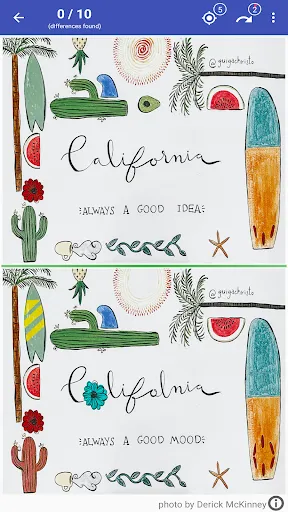 0 / 10
(differences found)
5
2
@guigachristo
California
ALWAYS A GOOD IDEA
Califolnia
ALWAYS A GOOD MOOD
photo by Derick McKinney